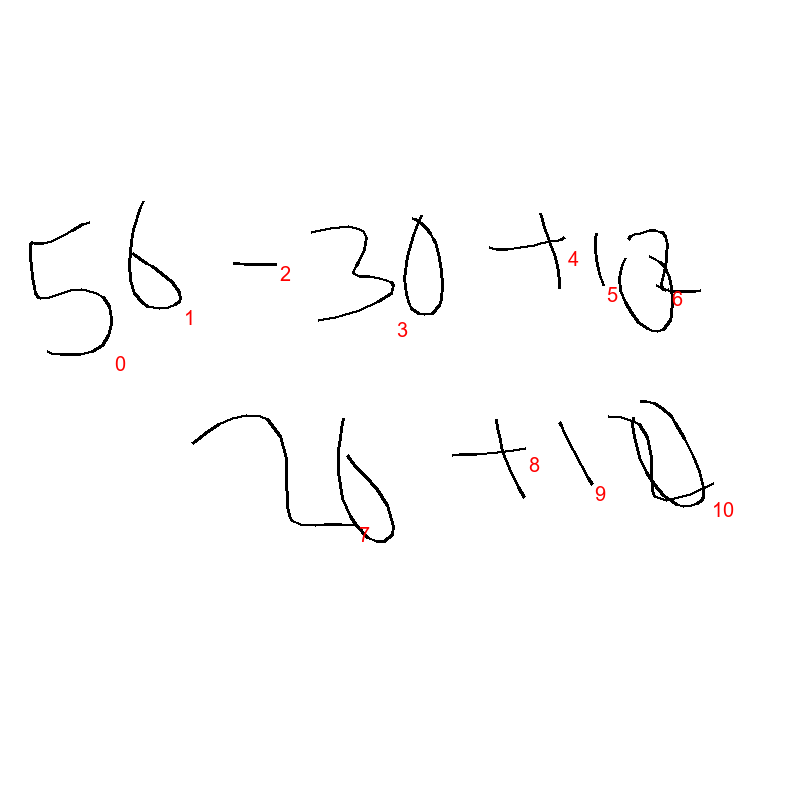 56 - 30 +
0 1 2 3 4 5 6
26 +
7 8 9 10